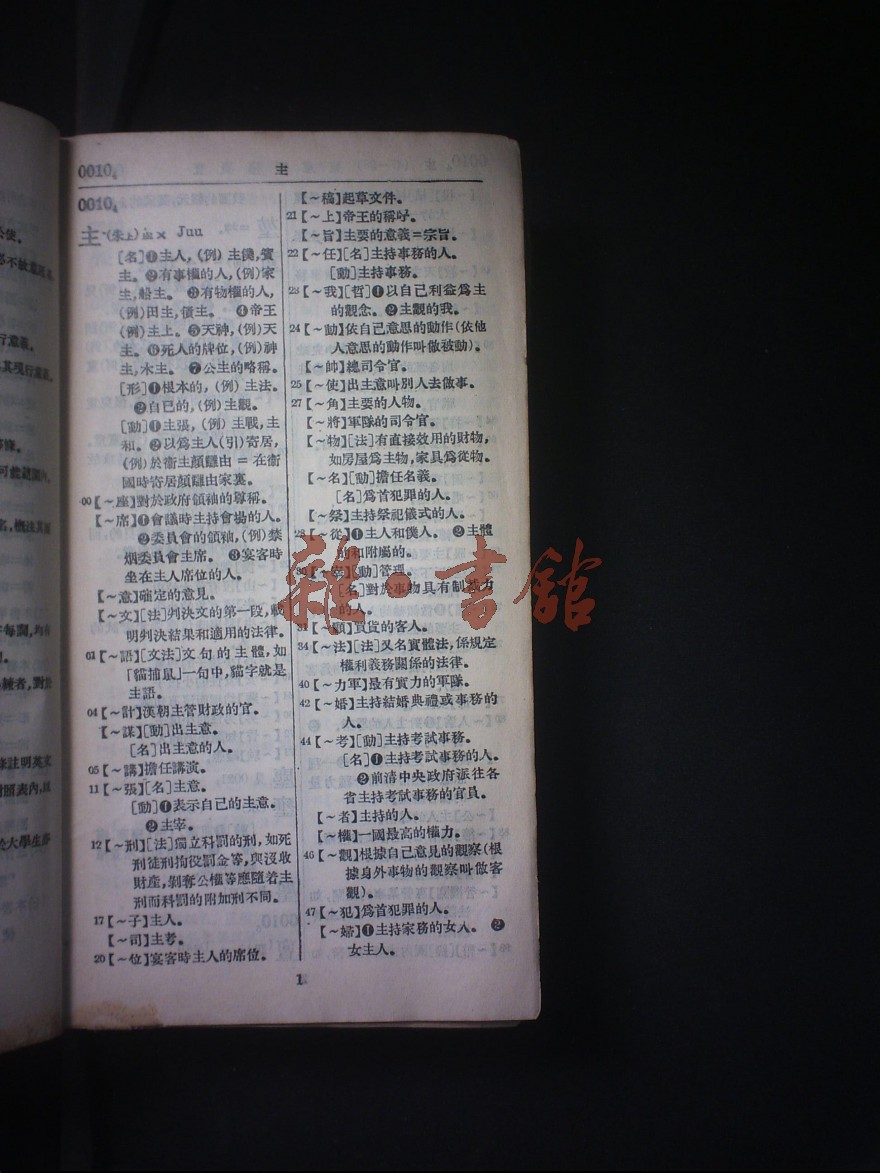 0010₄ 主
0010₄
主 (朱上) ㄓㄨ Juu
[名]❶主人,(例)主僕,賓
主。❷有事權的人,(例)家
主,船主。❸有物權的人,
(例)田主,債主。❹帝王
(例)主上。❺天神,(例)天
主。❻死人的牌位,(例)神
主,木主。❼公主的略稱。
[形]❶根本的,(例)主法。
❷自已的,(例)主觀。
[動]❶主張,(例)主戰,主
和。❷以爲主人(引)寄居,
(例)於衞主顏讎由=在衞
國時寄居顏讎由家裏。
00【~座】對於政府領袖的尊稱。
【~席】❶會議時主持會場的人。
❷委員會的領袖,(例)禁
烟委員會主席。❸宴客時
坐在主人席位的人。
【~意】確定的意見。
【~文】[法]判決文的第一段,載
明判決結果和適用的法律。
01【~語】[文法]文句的主體,如
「貓捕鼠」一句中,貓字就是
主語。
04【~計】漢朝主管財政的官。
【~謀】[動]出主意。
[名]出主意的人。
05【~講】擔任講演。
11【~張】[名]主意。
[動]❶表示自己的主意。
❷主宰。
12【~刑】[法]獨立科罰的刑,如死
刑徒刑拘役罰金等,與沒收
財產,剝奪公權等應隨着主
刑而科罰的附加刑不同。
17【~子】主人。
【~司】主考。
20【~位】宴客時主人的席位。
【~稿】起草文件。
21【~上】帝王的稱呼。
【~旨】主要的意義=宗旨。
22【~任】[名]主持事務的人。
[動]主持事務。
23【~我】[哲]❶以自己利益爲主
的觀念。❷主觀的我。
24【~動】依自己意思的動作(依他
人意思的動作叫做被動)。
【~帥】總司令官。
25【~使】出主意叫別人去做事。
27【~角】主要的人物。
【~將】軍隊的司令官。
【~物】[法]有直接效用的財物,
如房屋爲主物,家具爲從物。
【~名】[動]擔任名義。
[名]爲首犯罪的人。
【~祭】主持祭祀儀式的人。
28【~從】❶主人和僕人。❷主體
的和附屬的。
30【~宰】[動]管理。
[名]對於事物具有制裁力
的人。
31【~顧】買貨的客人。
34【~法】[法]又名實體法,係規定
權利義務關係的法律。
40【~力軍】最有實力的軍隊。
42【~婚】主持結婚典禮或事務的
人。
44【~考】[動]主持考試事務。
[名]❶主持考試事務的人。
❷前清中央政府派往各
省主持考試事務的官員。
【~者】主持的人。
【~權】一國最高的權力。
46【~觀】根據自己意見的觀察(根
據身外事物的觀察叫做客
觀)。
47【~犯】爲首犯罪的人。
【~婦】❶主持家務的女人。❷
女主人。
1
雜·書館